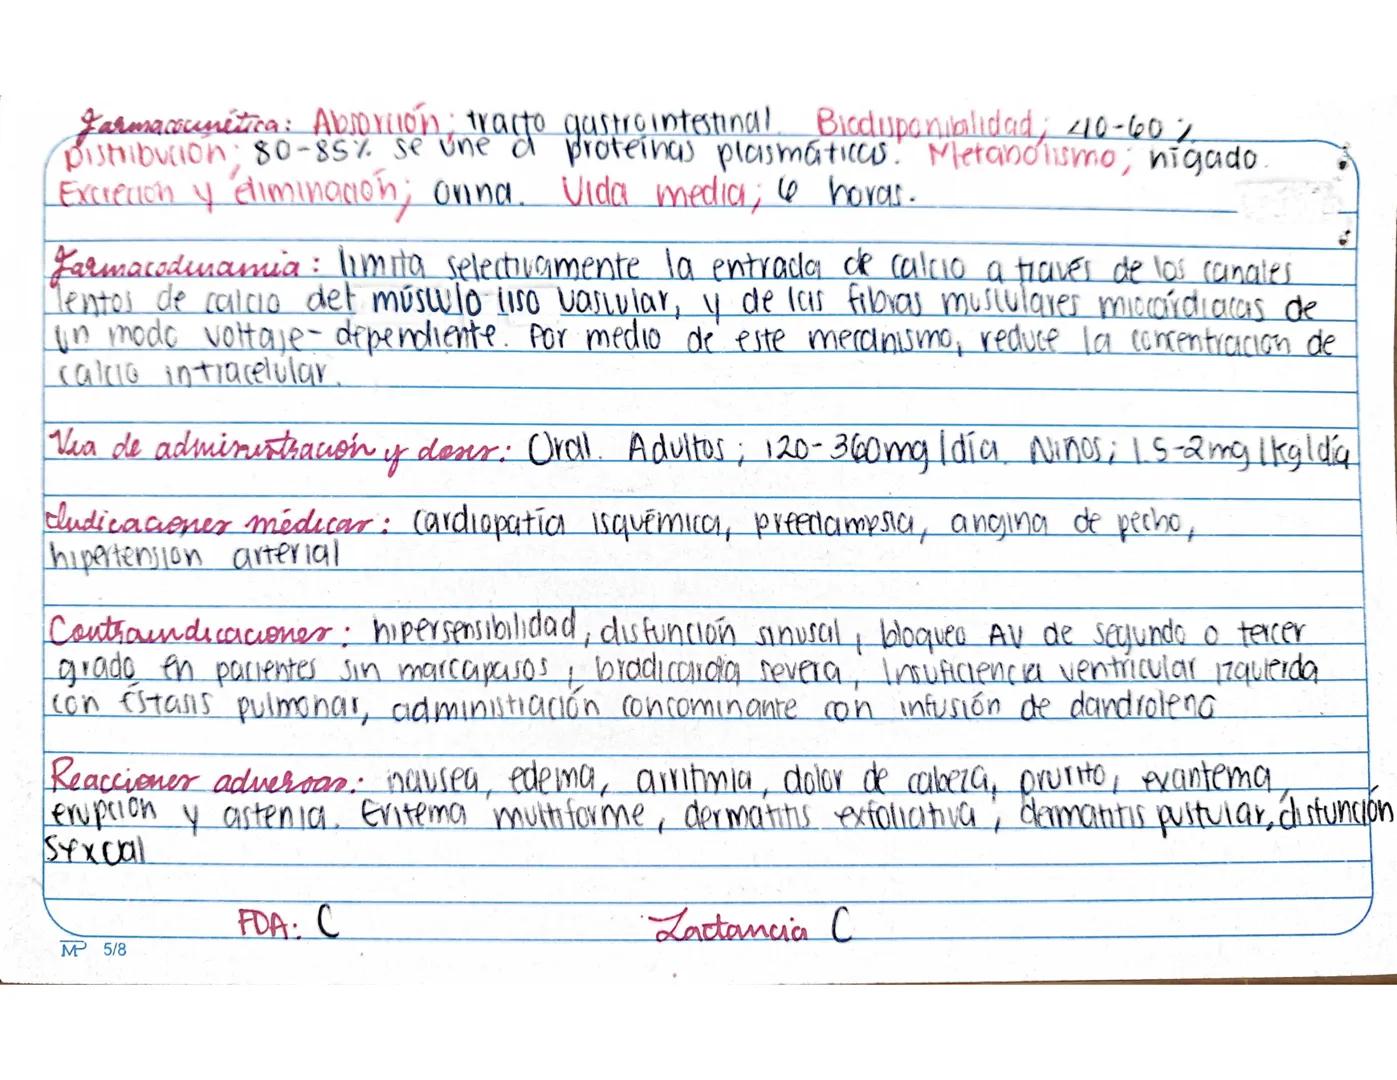 Farmacocinética: Absorción; tracto gastrointestinal. Biodisponibilidad; 40-60 %
Distribución; 80-85% se une a proteínas plasmáticas. Metabolismo; hígado.
Excreción y eliminación; orina. Vida media; 6 horas.
Farmacodinamia: limita selectivamente la entrada de calcio a través de los canales
lentos de calcio del músculo liso vascular, y de las fibras musculares miocárdiacas de
un modo voltaje-dependiente. Por medio de este mecanismo, reduce la concentración de
calcio intracelular.
Vía de administración y dosis: Oral. Adultos; 120-360mg/día. Niños; 1.5-2mg/kg/día
Indicaciones médicas: Cardiopatía isquémica, preeclampsia, angina de pecho,
hipertensión arterial
Contraindicaciones: hipersensibilidad, disfunción sinusal, bloqueo AV de segundo o tercer
grado en pacientes sin marcapasos, bradicardia severa, Insuficiencia ventricular izquierda
con éstasis pulmonar, administración concominante con infusión de dandroleno
Reacciones adversas: nausea, edema, arritmia, dolor de cabeza, prurito, exantema,
erupción y astenia. Eritema multiforme, dermatitis exfoliativa, dermatitis pustular, disfunción
sexual
FDA: C Lactancia C
MP 5/8